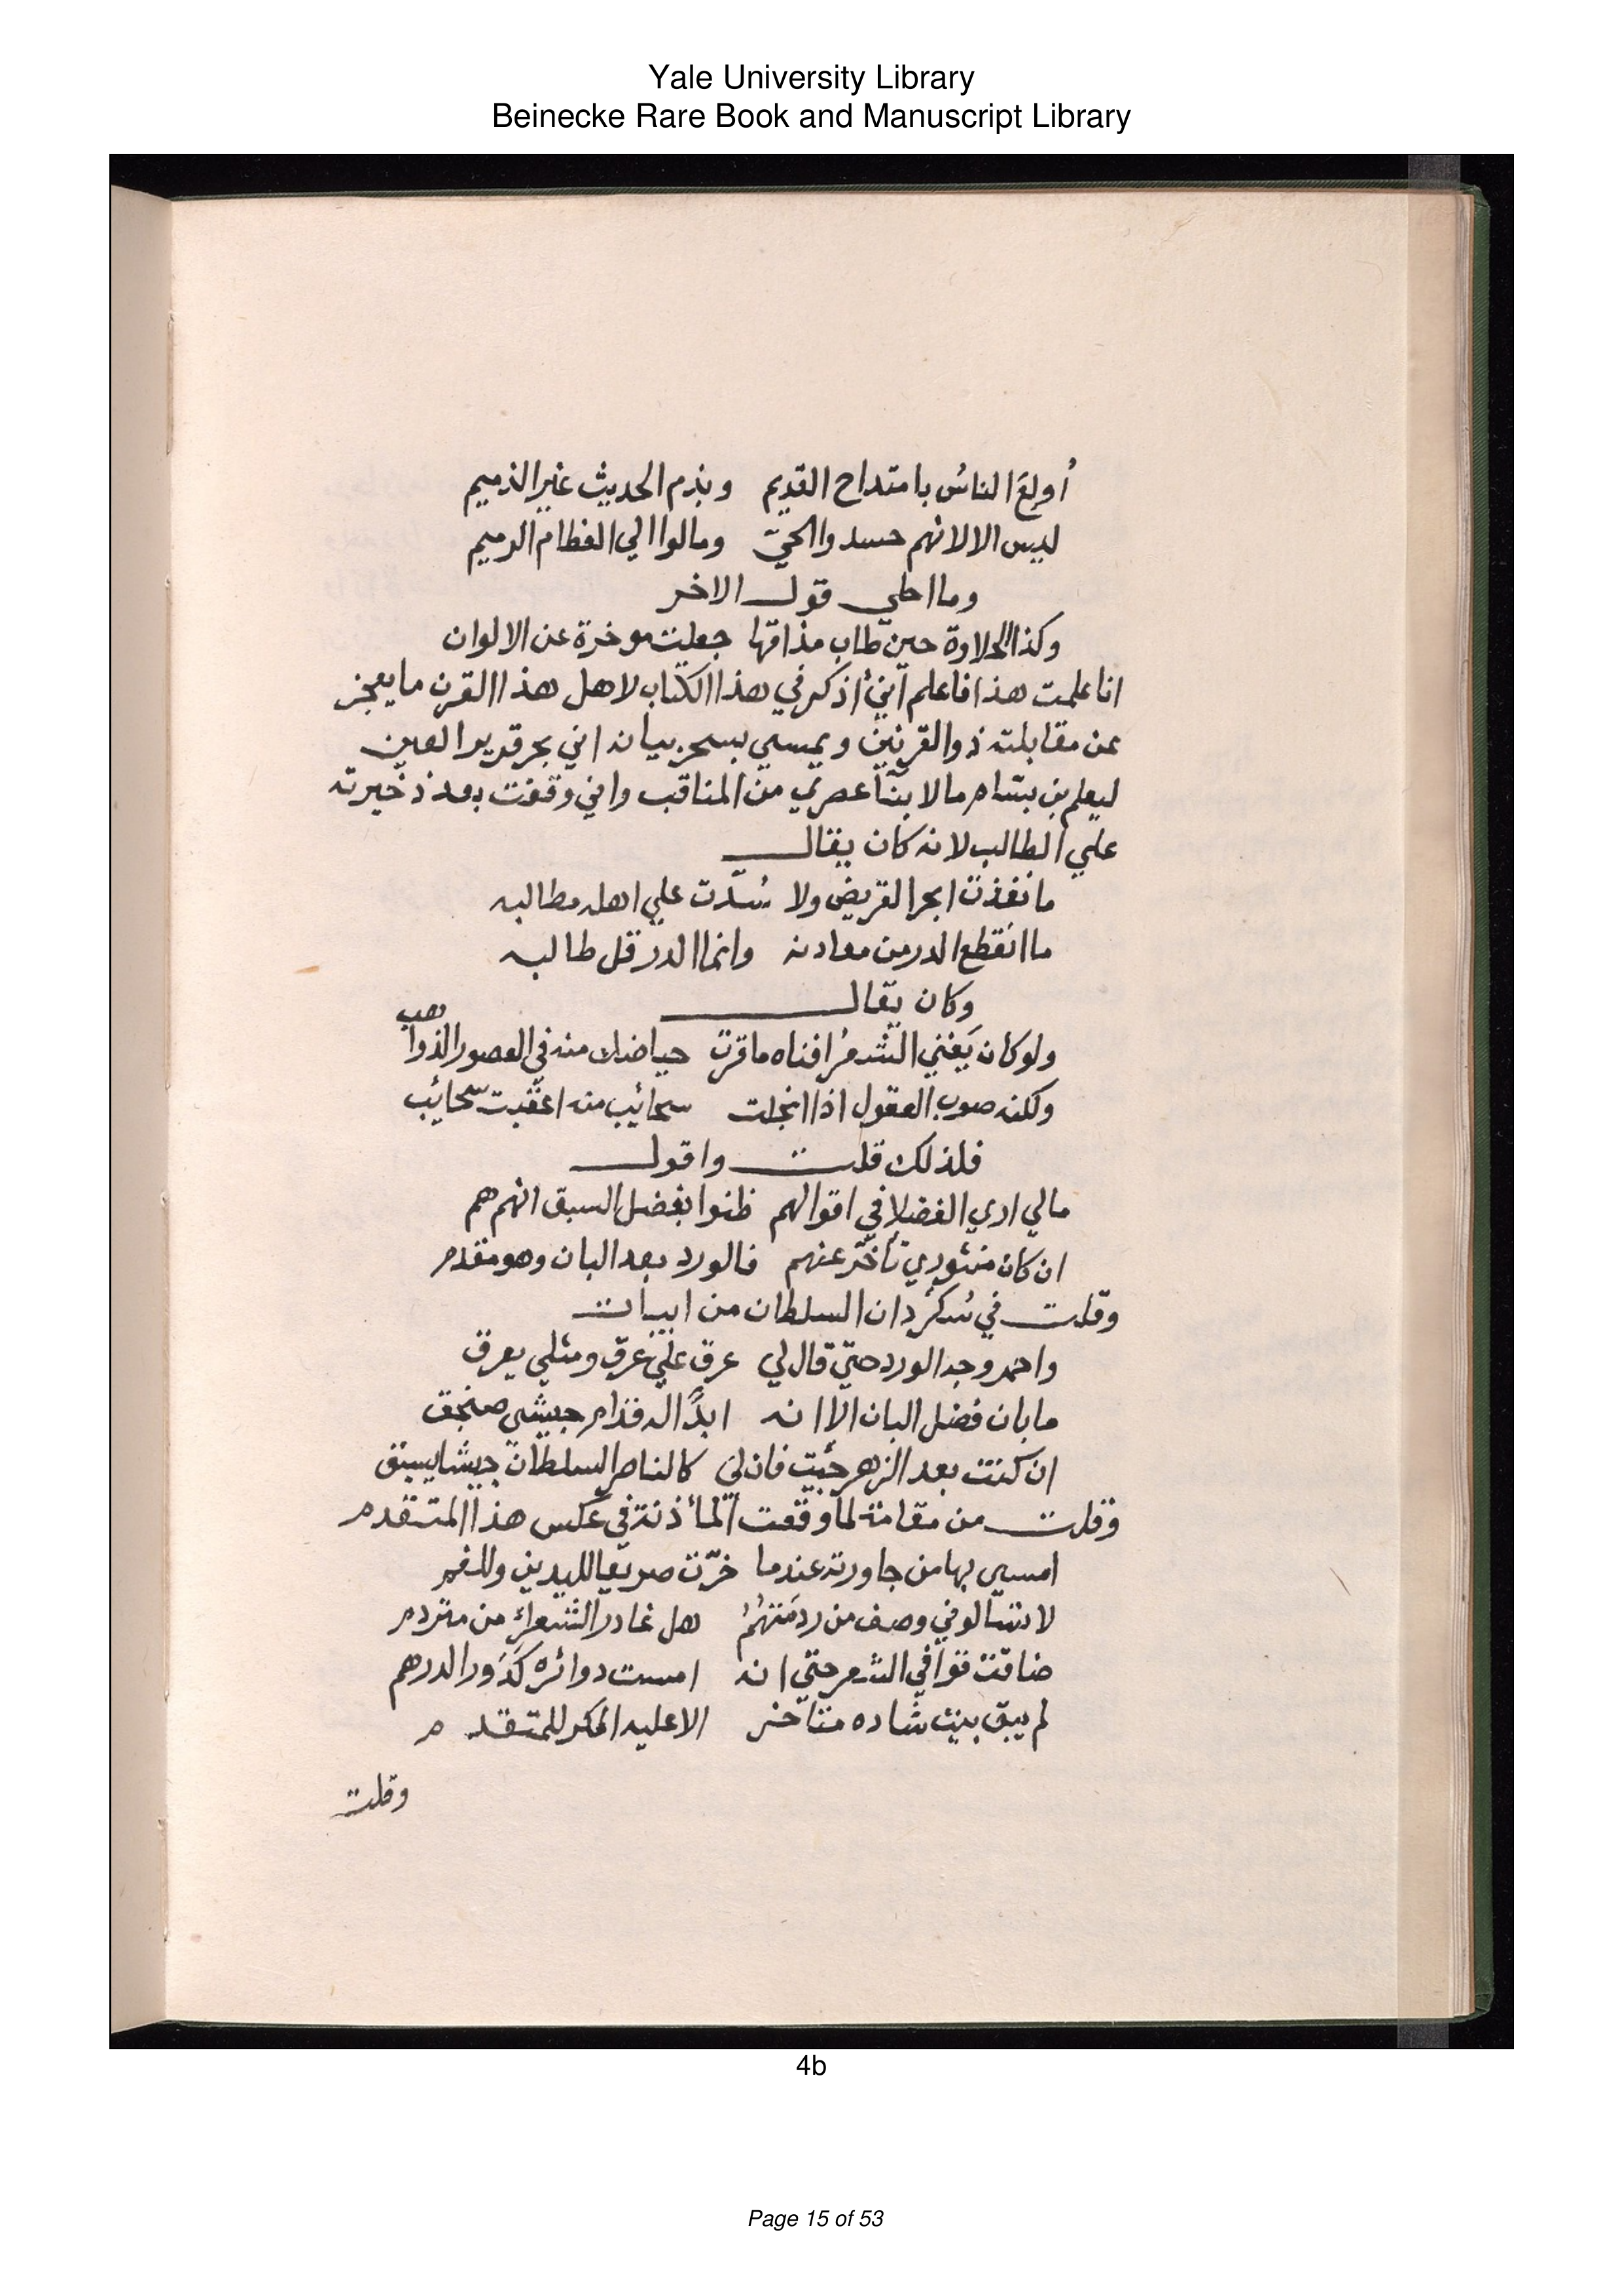 Yale University Library
Beinecke Rare Book and Manuscript Library
أولع الناس بامتداح القديم وبذم الحديث غير الذميم
ليس الا لانهم حسدوا الحيّ ومالوا الي العظام الرميم
وما احلي قول الاخر
وكذا الحلاوة حين طاب مذاقها جعلت موخرة عن الالوان
انا علمت هذا فاعلم انني اذكر في هذا الكتاب لاهل هذا القرن ما يعجز
عن مقابلته ذوالقرنين ويمسي بسحر بيانه اني بحر قرير العين
ليعلم بن بسام ما لابنآ عصري من المناقب واني وقفت بعد ذخيرته
علي الطالب لانه كان يقال
ما نفذت ابحر القريض ولا سُدّت علي اهله مطالبه
ما انقطع الدر من معادنه وانما الدر قل طالبه
وكان يقال
ولو كان يَفني الشعرُ افناه ماقرت حياضك منه في العصور الذواهب
ولكنه صوب العقول اذا انجلت سحائب منه اعقبت سحائب
فلذلك قلت واقول
مالي اري الفضلا في اقوالهم ظنوا بفضل السبق انهم هم
ان كان منثوري تأخّر عنهم فالورد بعد البان وهو مقدم
وقلت في سُكرْدان السلطان من ابيات
واحمر وجه الورد حتي قال لي عرق علي عرق ومثلي يعرق
ما بان فضل البان الا انه ابدًا له قدام جيشي صنجق
ان كنت بعد الزهر جئت فان لي كالناصر السلطان جيشا يسبق
وقلت من مقامة لما وقعت المأذنة في عكس هذا المتقدم
امسي بها من جاورته عندما خرّت صريعا لليدين وللفم
لا تسالوني وصف من ردمتهُمُ هل غادر الشعراء من متردم
ضاقت قوافي الشعر حتي انه امست دوائره كدَور الدرهم
لم يبق بيت شاده متآخر الا عليه الحكر للمتقدم
وقلت
4b
Page 15 of 53